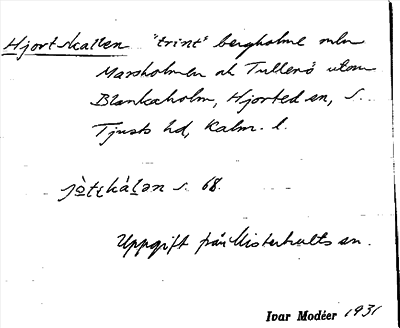 Hjortskallen "trint" bergholme mln
Marsholmen ok Tullerö utom
Blankaholm, Hjorted sn, S.
Tjusts hd, Kalm. l.
s. 68.
Uppgift från Misterhults sn.
Ivar Modéer 1931